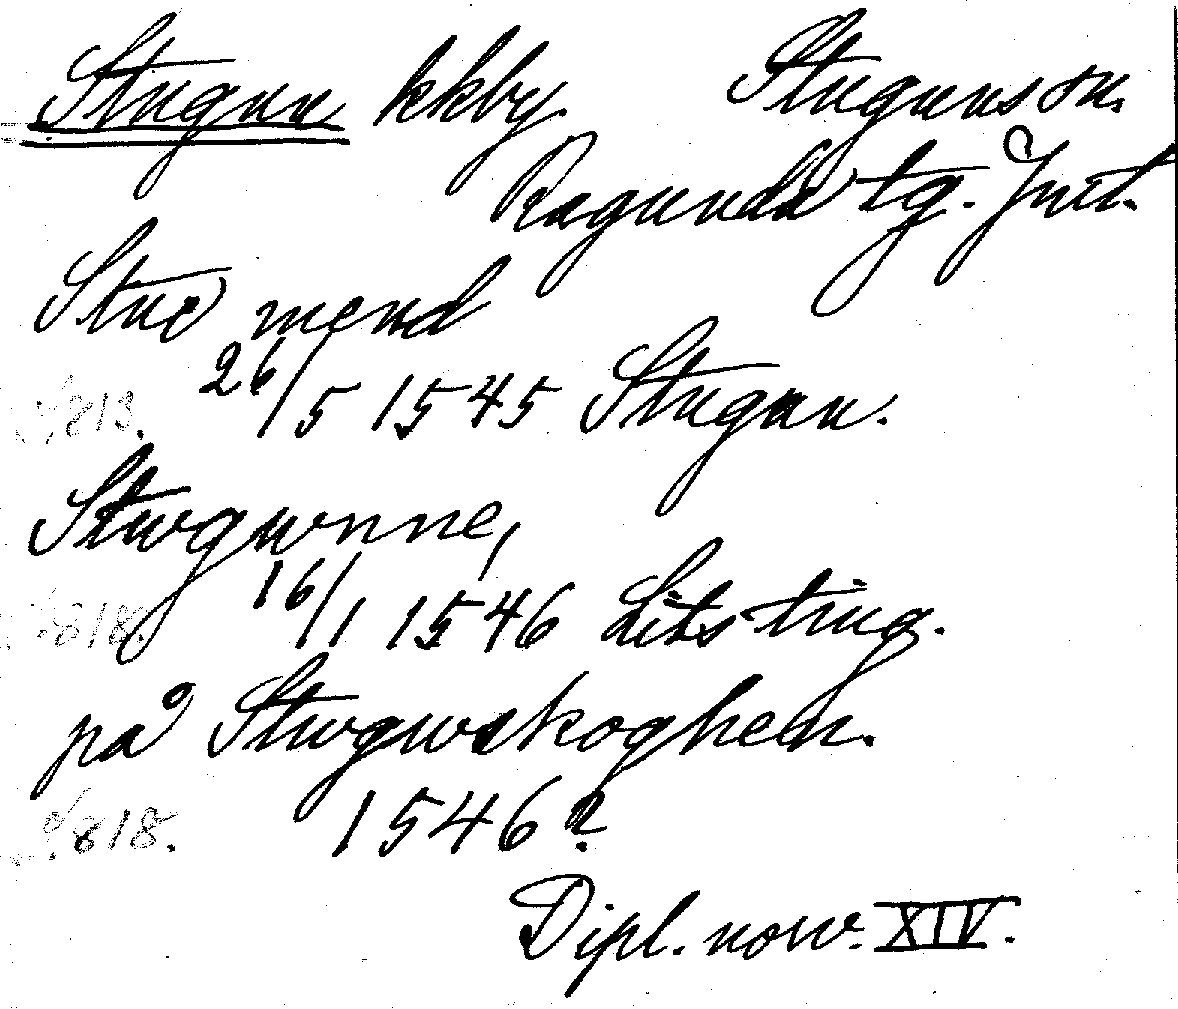 Stugun kkby. Stuguns sn.
Ragunda tg. Jmtl.
Stue mend
26/5 1545 Stugun.
s. 813.
Stwgwnne,
16/1 1546 Lits ting.
s. 818.
på Stwgwskoghen.
s. 818. 1546?
Dipl. norv. XIV.